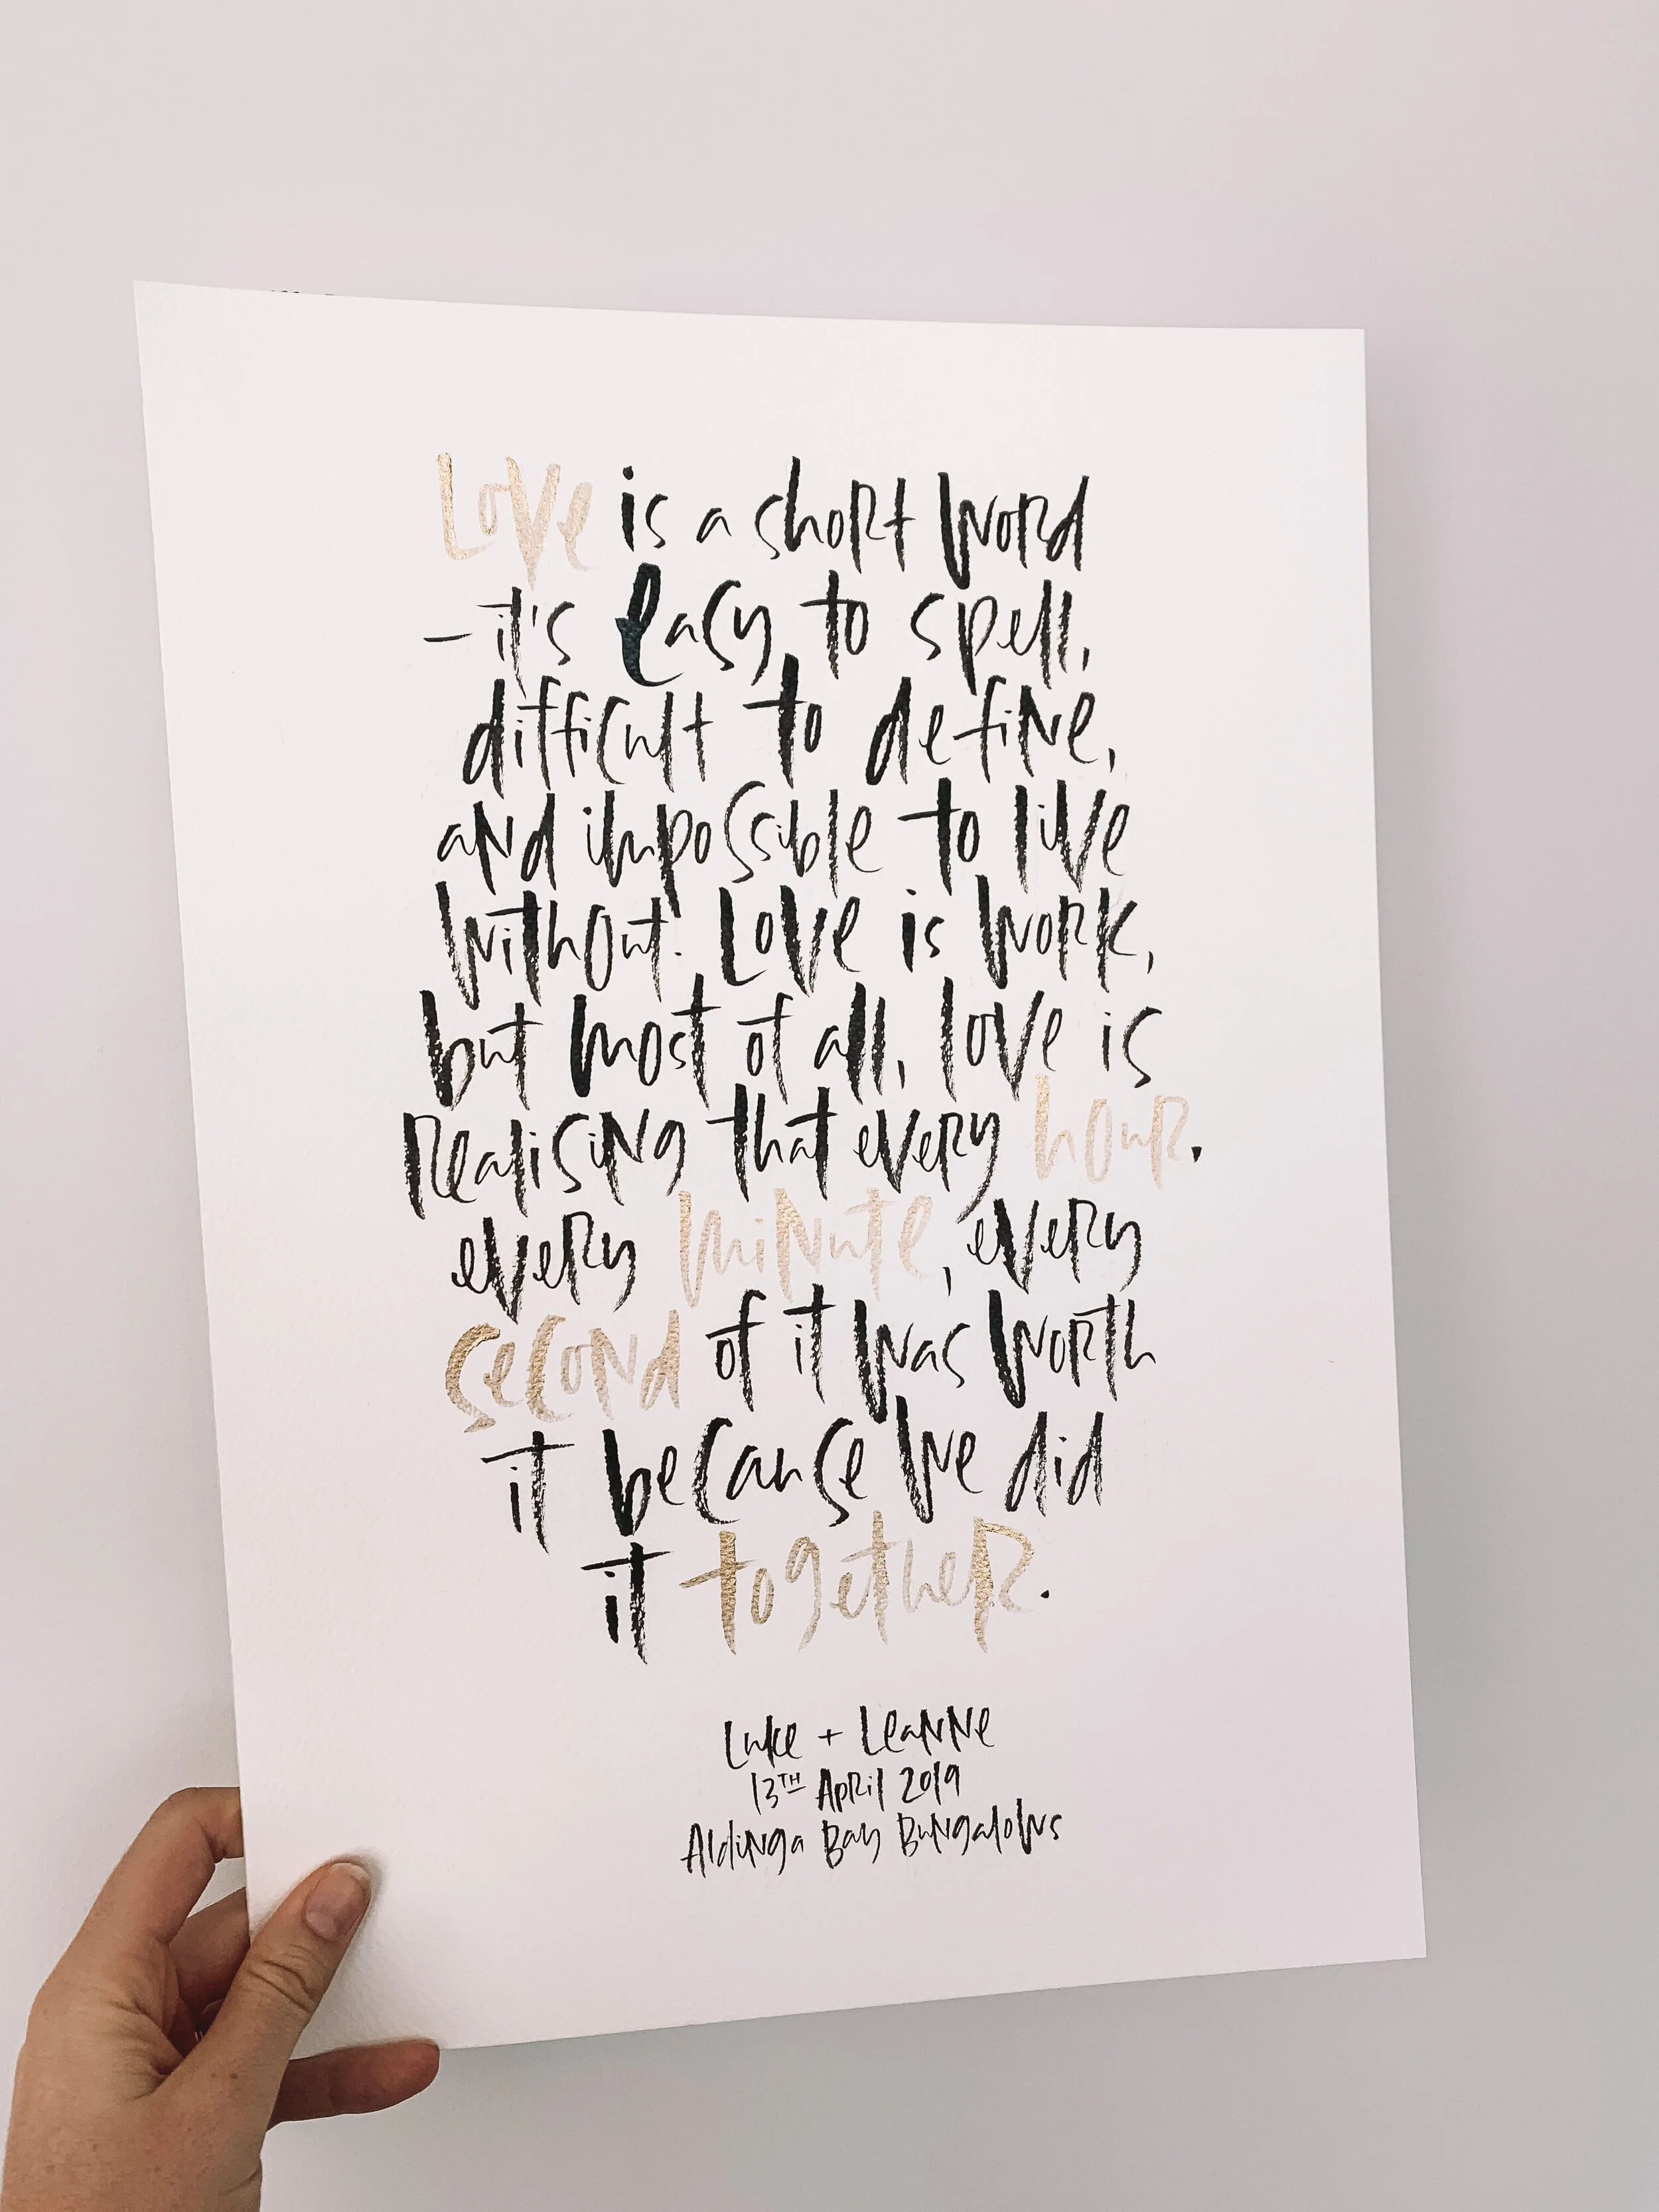 Love is a short word
- it's easy to spell,
difficult to define,
and impossible to live
without. Love is work,
but most of all, love is
realising that every hour,
every minute, every
second of it was worth
it because we did
it together.
Luke + Leanne
13TH April 2019
Aldinga Bay Bungalows